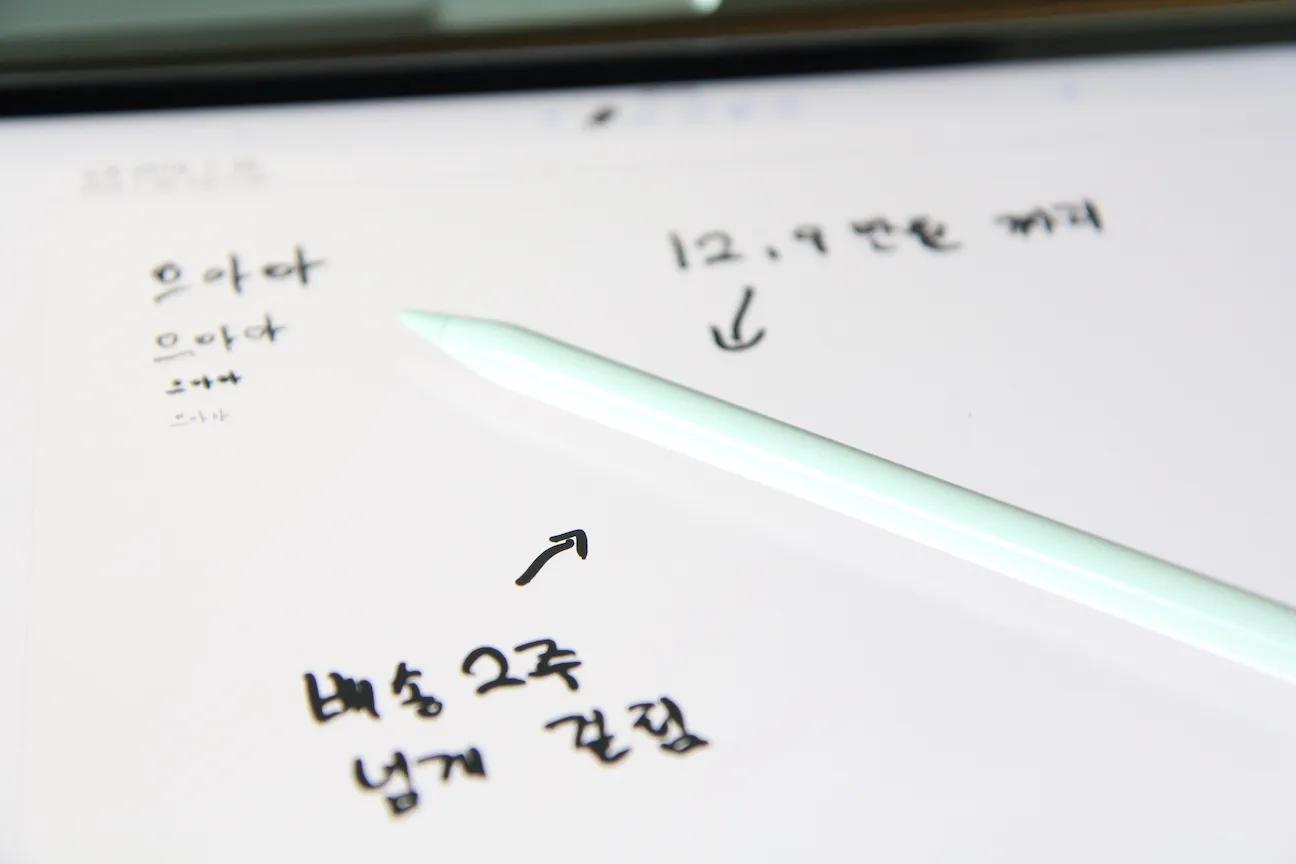 으아아
으아아
으아아
으아아
12.9만원 까지
배송 2주
넘게 걸림